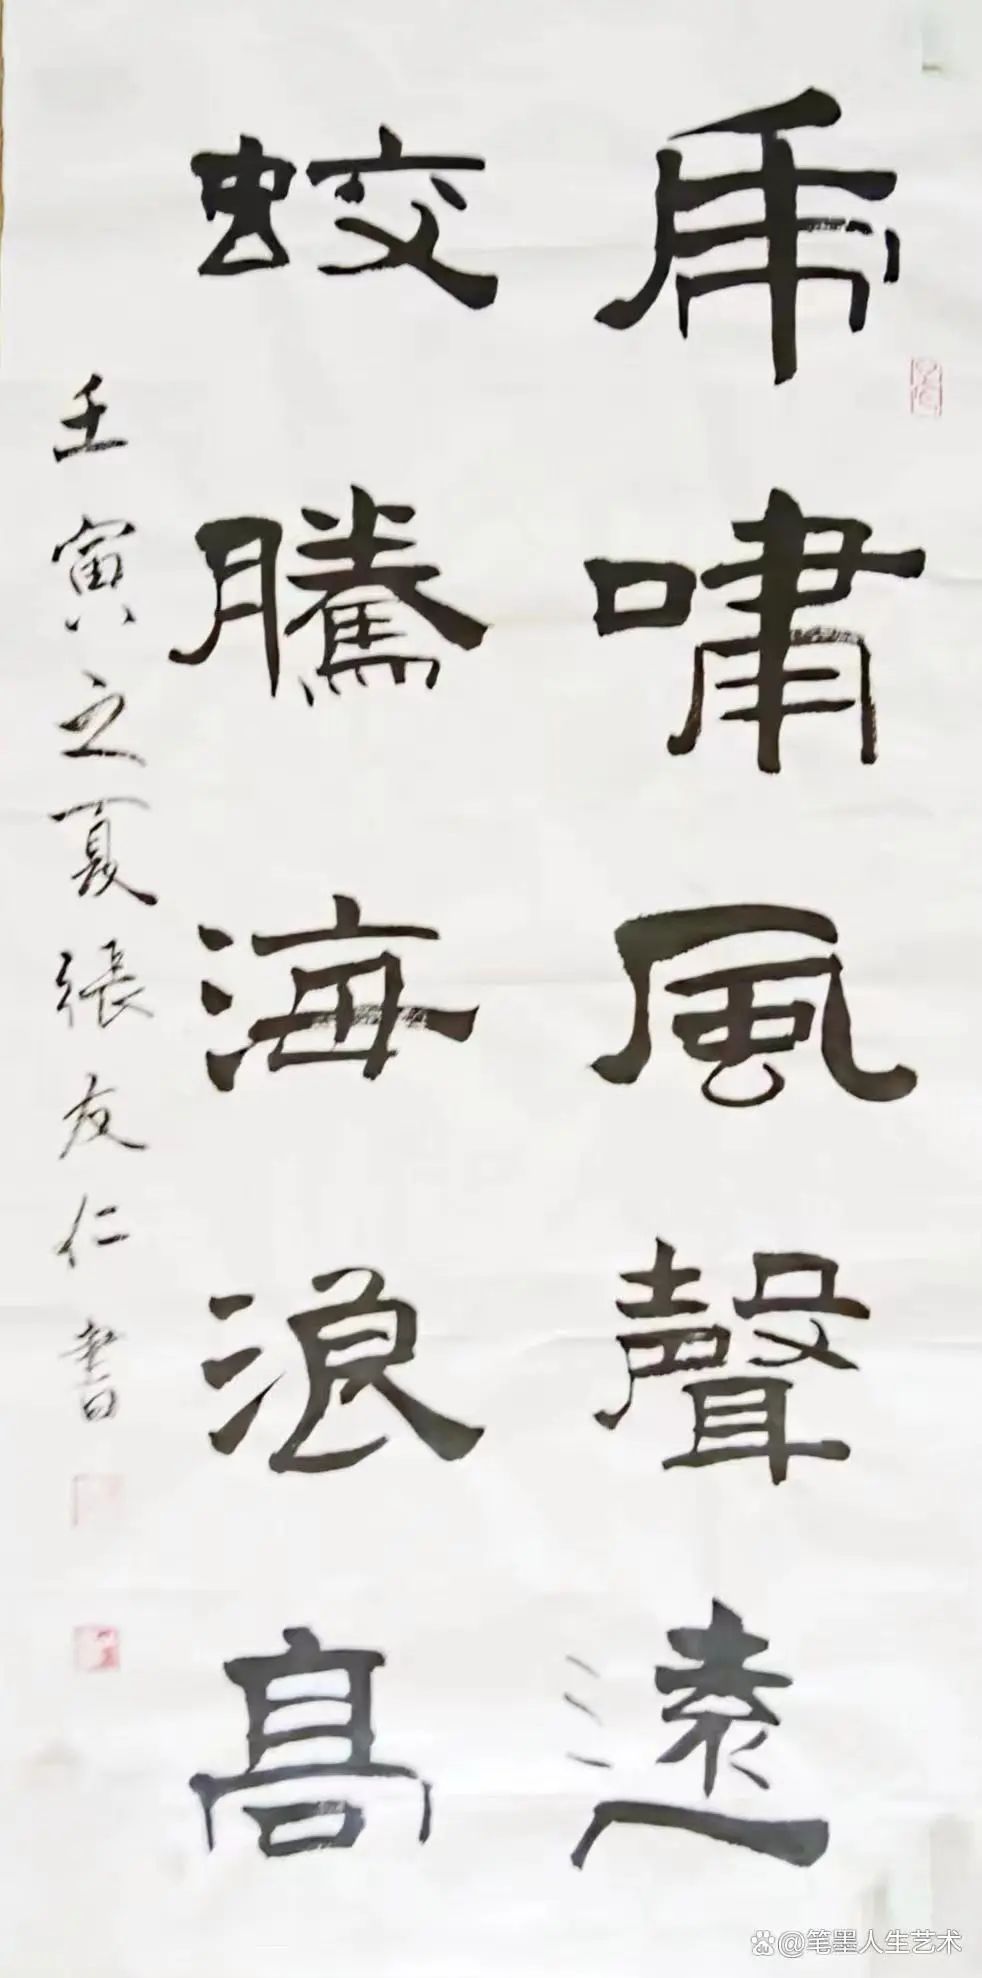 虎嘯風聲遠
蛟騰海浪高
壬寅之夏張友仁書
@笔墨人生艺术